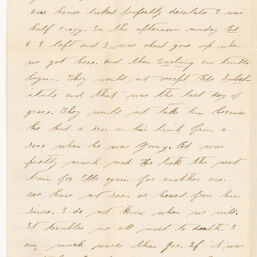 our house looked perfectly desolate I was
half crazy. In the afternoon Sunday Ed
& I left and I was about gave up when
we got there. and then Darling our trouble
began. They would not accept Eds Substi
stute and that was the last day of
grace. They would not take him because
he had a sear on his limb from a
sear when he was young. Ed was
pretty much mad He took the next
train for again for another one.
we have not seen or heard from him
since. I do not know when we will.
It troubles me all most to death. I
am much worse than you. If it was